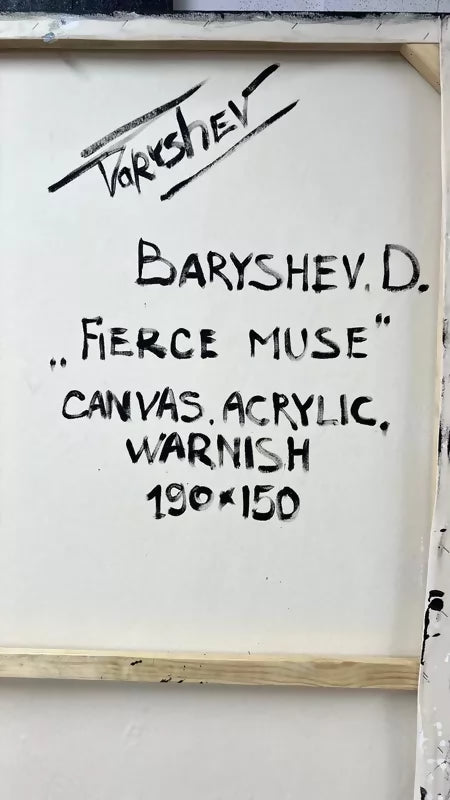 Baryshev
BARYSHEV. D.
„FIERCE MUSE“
CANVAS. ACRYLIC.
WARNISH
190×150